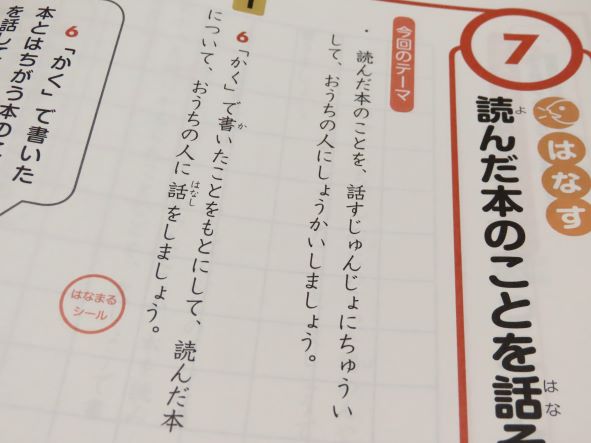 7
はなす
読んだ本のことを話
今回のテーマ
・読んだ本のことを、話すじゅんじょにちゅうい
して、おうちの人にしょうかいしましょう。
6 「かく」で書いたことをもとにして、読んだ本
について、おうちの人に話をしましょう。
はなまる
シール
6 「かく」で書いた
本とはちがう本のこ
を話し